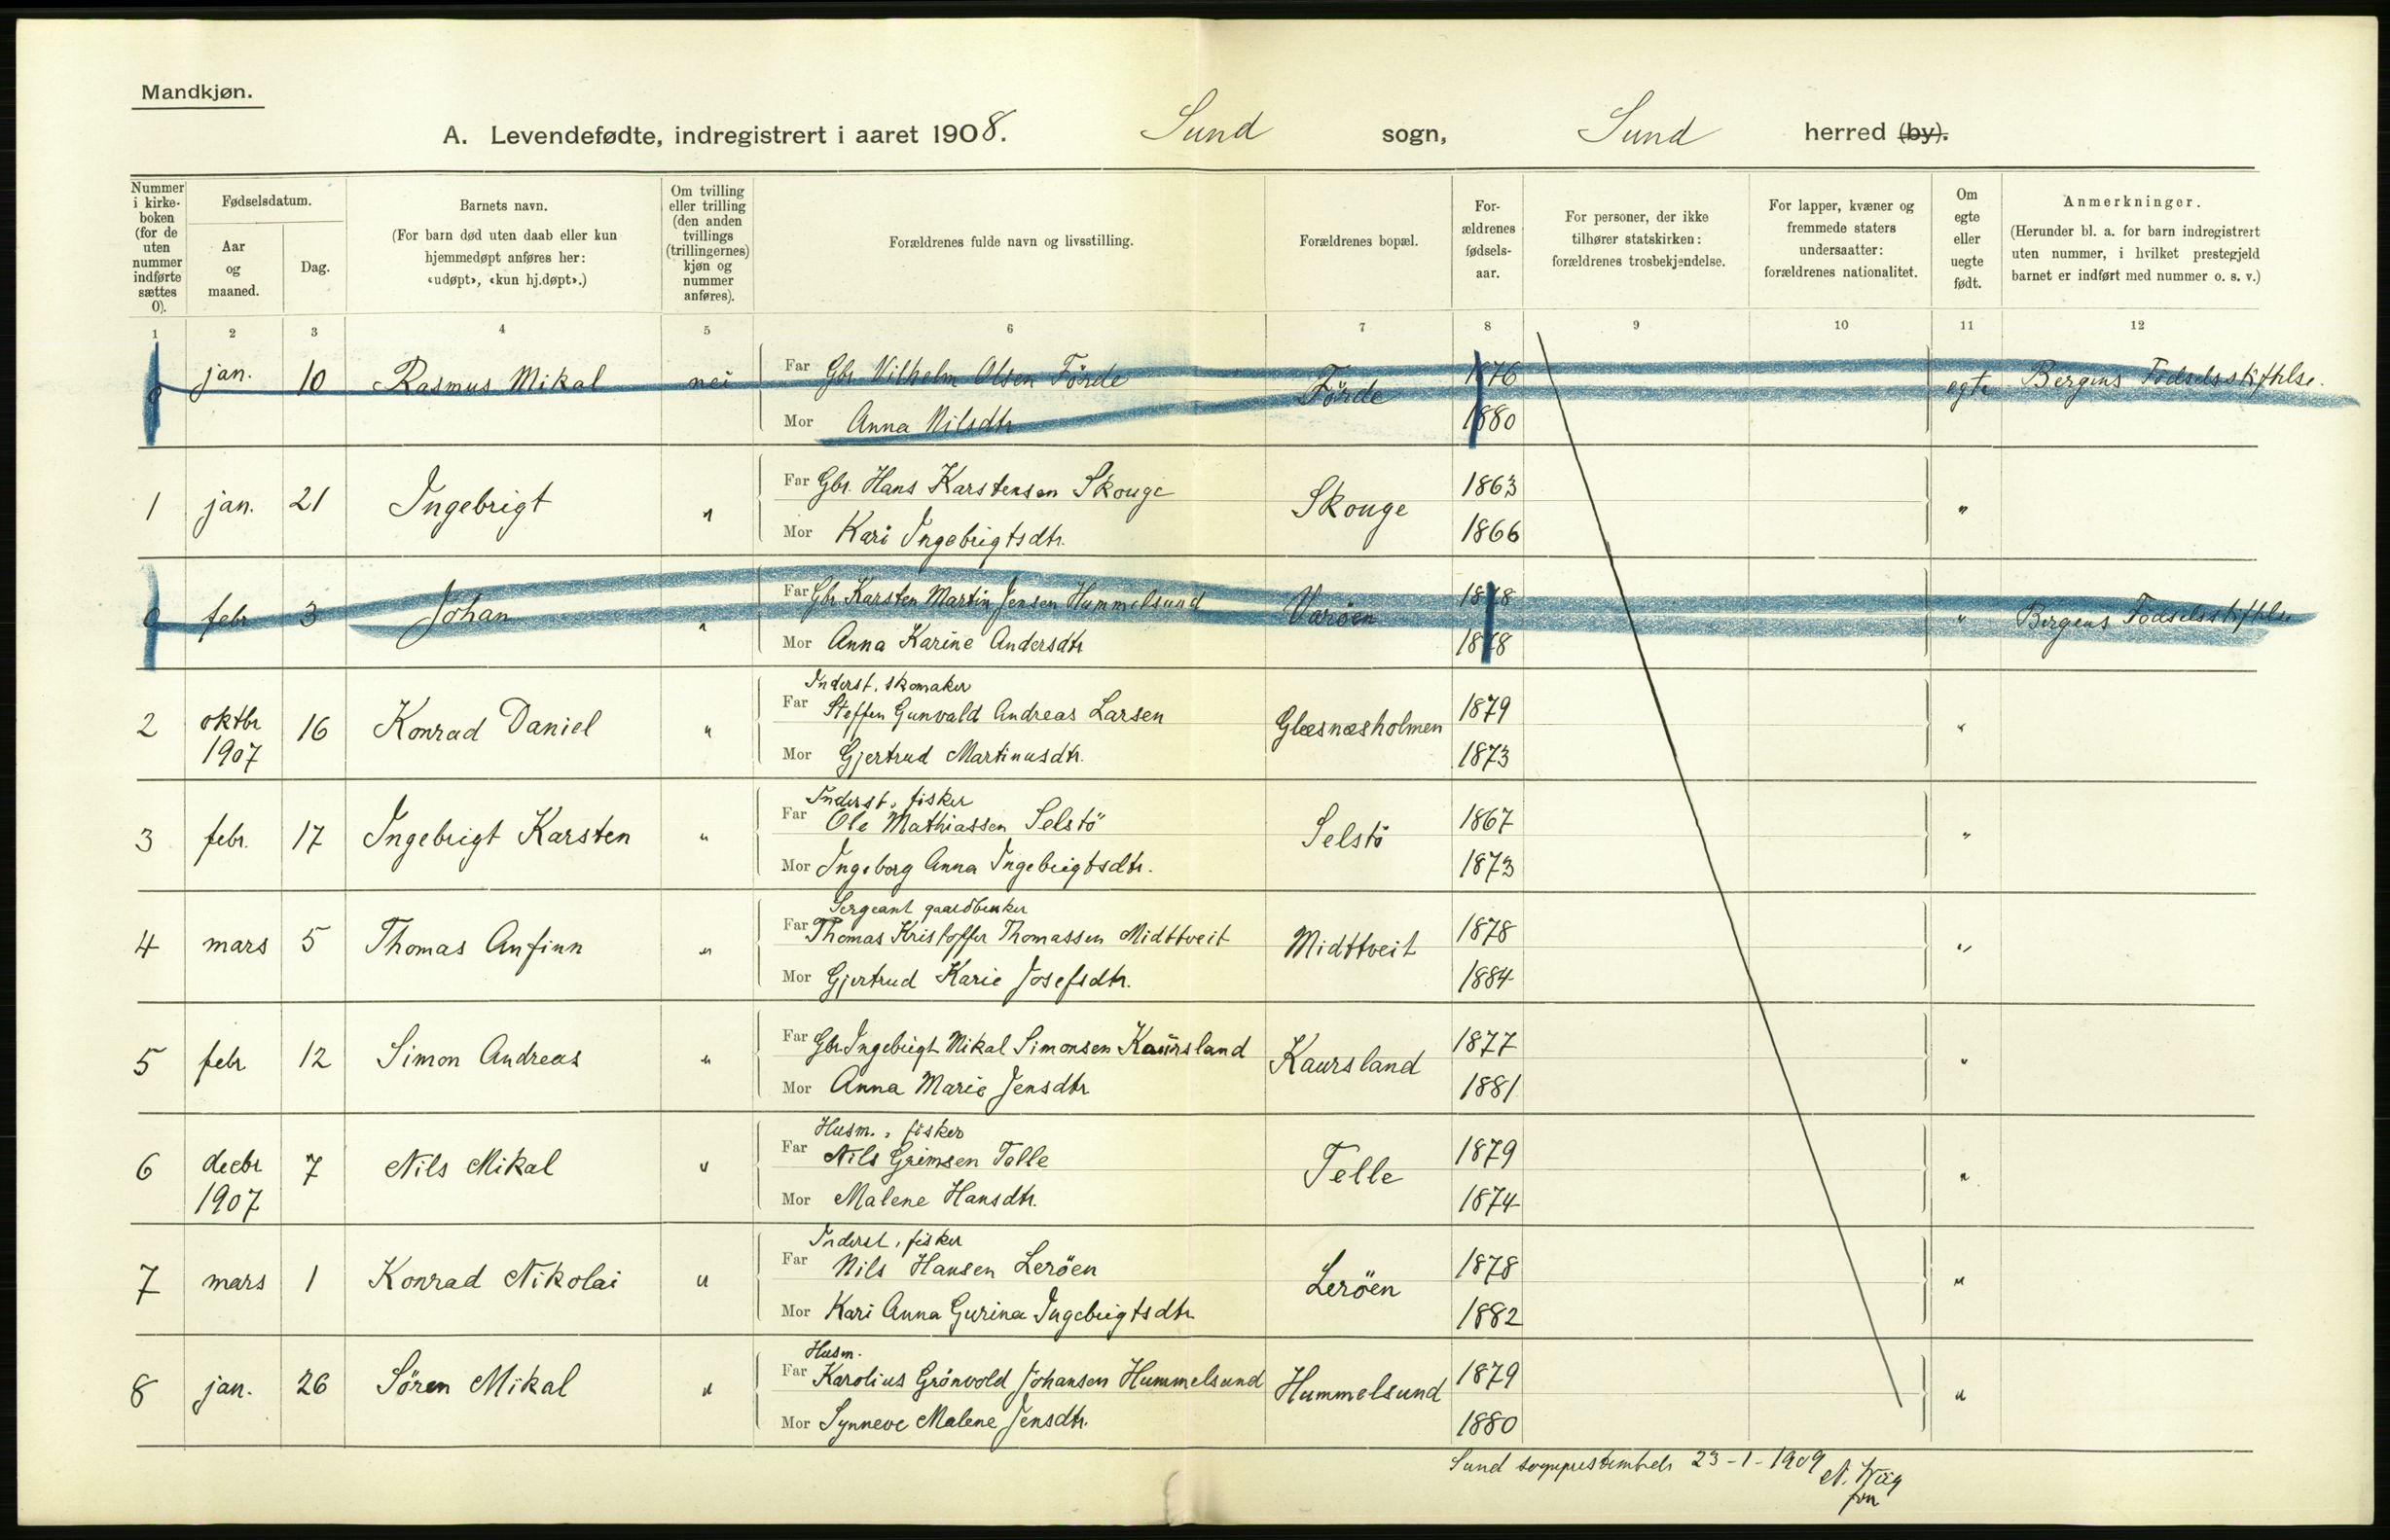 Mandkjøn.
A. Levendefødte, indregistrert i aaret 1908. Sund sogn, Sund herred (by).
Nummer i kirke-boken (for de uten nummer indførte sættes 0).
Fødselsdatum.
Aar og maaned.
Dag.
Barnets navn.
(For barn død uten daab eller kun hjemmedøpt anføres her: «udøpt», «kun hj.døpt».)
Om tvilling eller trilling (den anden tvillings (trillingernes) kjøn og nummer anføres).
Forældrenes fulde navn og livsstilling.
Forældrenes bopæl.
For-ældrenes fødsels-aar.
For personer, der ikke tilhører statskirken: forældrenes trosbekjendelse.
For lapper, kvæner og fremmede staters undersaatter: forældrenes nationalitet.
Om egte eller uegte født.
Anmerkninger.
(Herunder bl. a. for barn indregistrert uten nummer, i hvilket prestegjeld barnet er indført med nummer o. s. v.)
1 2 3 4 5 6 7 8 9 10 11 12
0 jan. 10 Rasmus Mikal nei Far Gbr. Vilhelm Olsen Förde Förde 1876 egte Bergens Födselsstiftelse.
Mor Anna Nilsdtr 1880
1 jan. 21 Ingebrigt " Far Gbr. Hans Karstensen Skouge Skouge 1863 "
Mor Kari Ingebrigtsdtr. 1866
0 febr 3 Johan " Far Gbr Karsten Martin Jensen Hummelsund Varöen 1878 " Bergens Födselsstiftelse
Mor Anna Karine Andersdtr 1878
Inderst, skomaker
2 oktbr 1907 16 Konrad Daniel " Far Steffen Gunvald Andreas Larsen Glæsnæsholmen 1879 "
Mor Gjertrud Martinusdtr. 1873
Inderst, fisker
3 febr. 17 Ingebrigt Karsten " Far Ole Mathiassen Selstö Selstö 1867 "
Mor Ingeborg Anna Ingebrigtsdtr. 1873
Sergeant gaardbruker
4 mars 5 Thomas Anfinn " Far Thomas Kristoffer Thomassen Midttveit Midttveit 1878 "
Mor Gjertrud Karie Josefsdtr. 1884
5 febr 12 Simon Andreas " Far Gbr Ingebrigt Mikal Simonsen Kaursland Kaursland 1877 "
Mor Anna Marie Jensdtr 1881
Husm., fisker
6 decbr 1907 7 Nils Mikal " Far Nils Grimsen Telle Telle 1879 "
Mor Malene Hansdtr. 1874
Inderst, fisker
7 mars 1 Konrad Nikolai " Far Nils Hansen Leröen Leröen 1878 "
Mor Kari Anna Gurina Ingebrigtsdtr 1882
Husm.
8 jan. 26 Sören Mikal " Far Karolius Grönvold Johansen Hummelsund Hummelsund 1879 "
Mor Synneve Malene Jensdtr. 1880
Sund sogneprestembede 23-1-1909